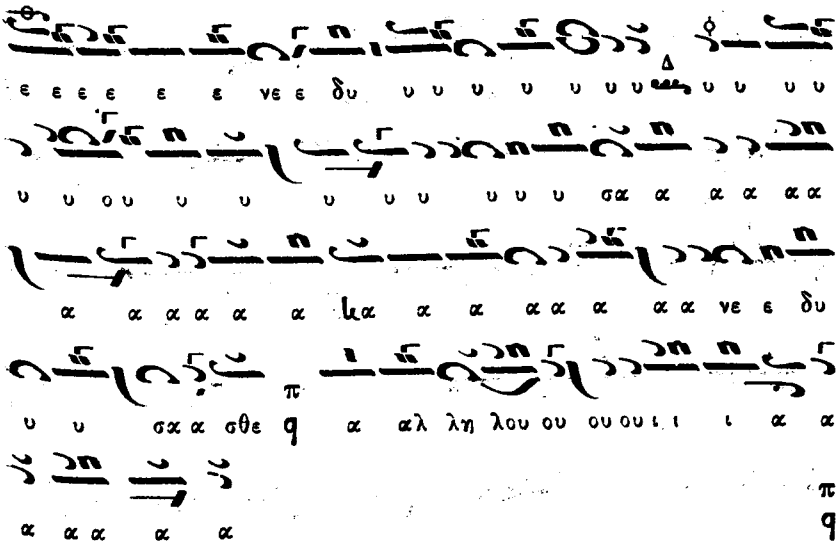 ε ε ε ε ε ε νε ε δυ υ υ υ υ υ υ υ Δ υ υ υ υ
υ υ ου υ υ υ υ υ υ υ υ σα α α α α α
α α α α α α κα α α α α α α α νε ε δυ
υ υ σα α σθε π q α αλ λη λου ου ου ου ι ι ι α α
α α α α α π q